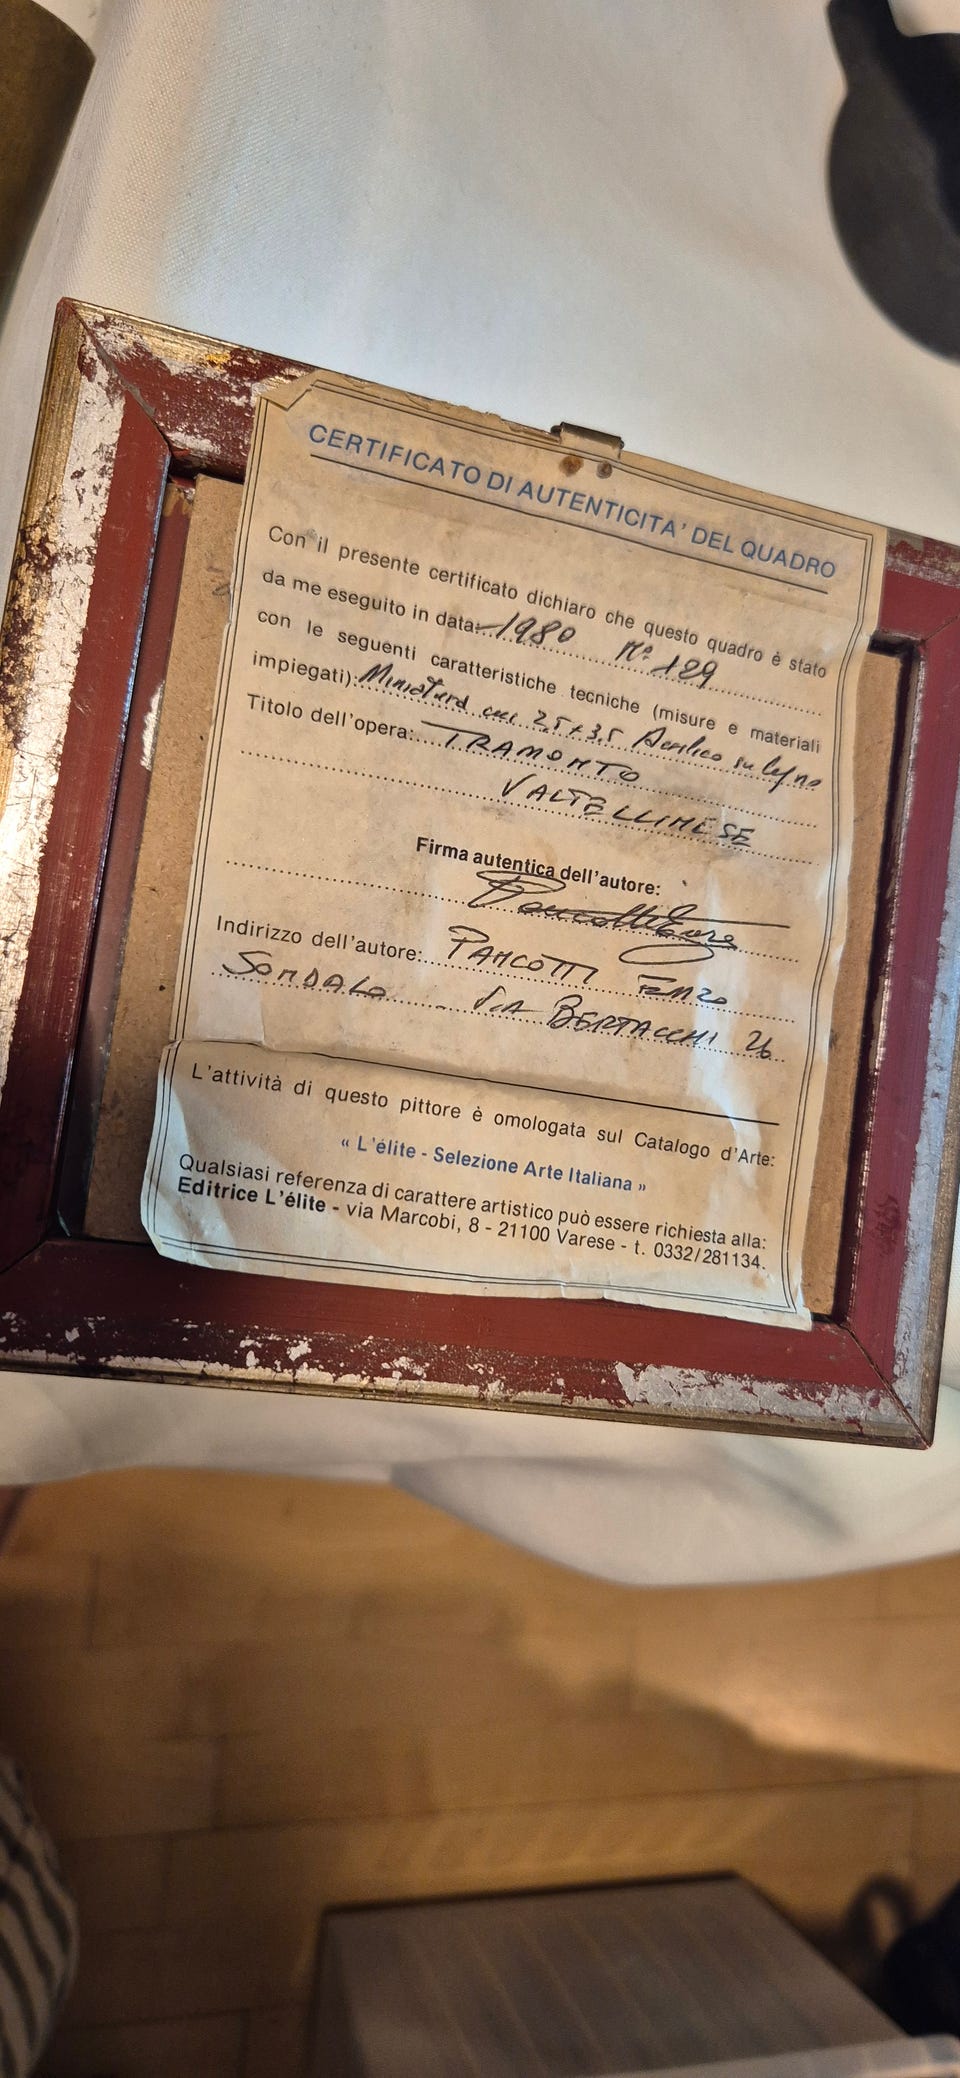 CERTIFICATO DI AUTENTICITA' DEL QUADRO
Con il presente certificato dichiaro che questo quadro è stato
da me eseguito in data: 1980 N° 189
con le seguenti caratteristiche tecniche (misure e materiali
impiegati): Miniatura cm 2,5 x 3,5 Acrilico su legno
Titolo dell'opera: TRAMONTO
VALTELLINESE
Firma autentica dell'autore:
Indirizzo dell'autore: PANCOTTI ENZO
SONDALO - VIA BERTACCHI 26
L'attività di questo pittore è omologata sul Catalogo d'Arte:
« L'élite - Selezione Arte Italiana »
Qualsiasi referenza di carattere artistico può essere richiesta alla:
Editrice L'élite - via Marcobi, 8 - 21100 Varese - t. 0332/281134.